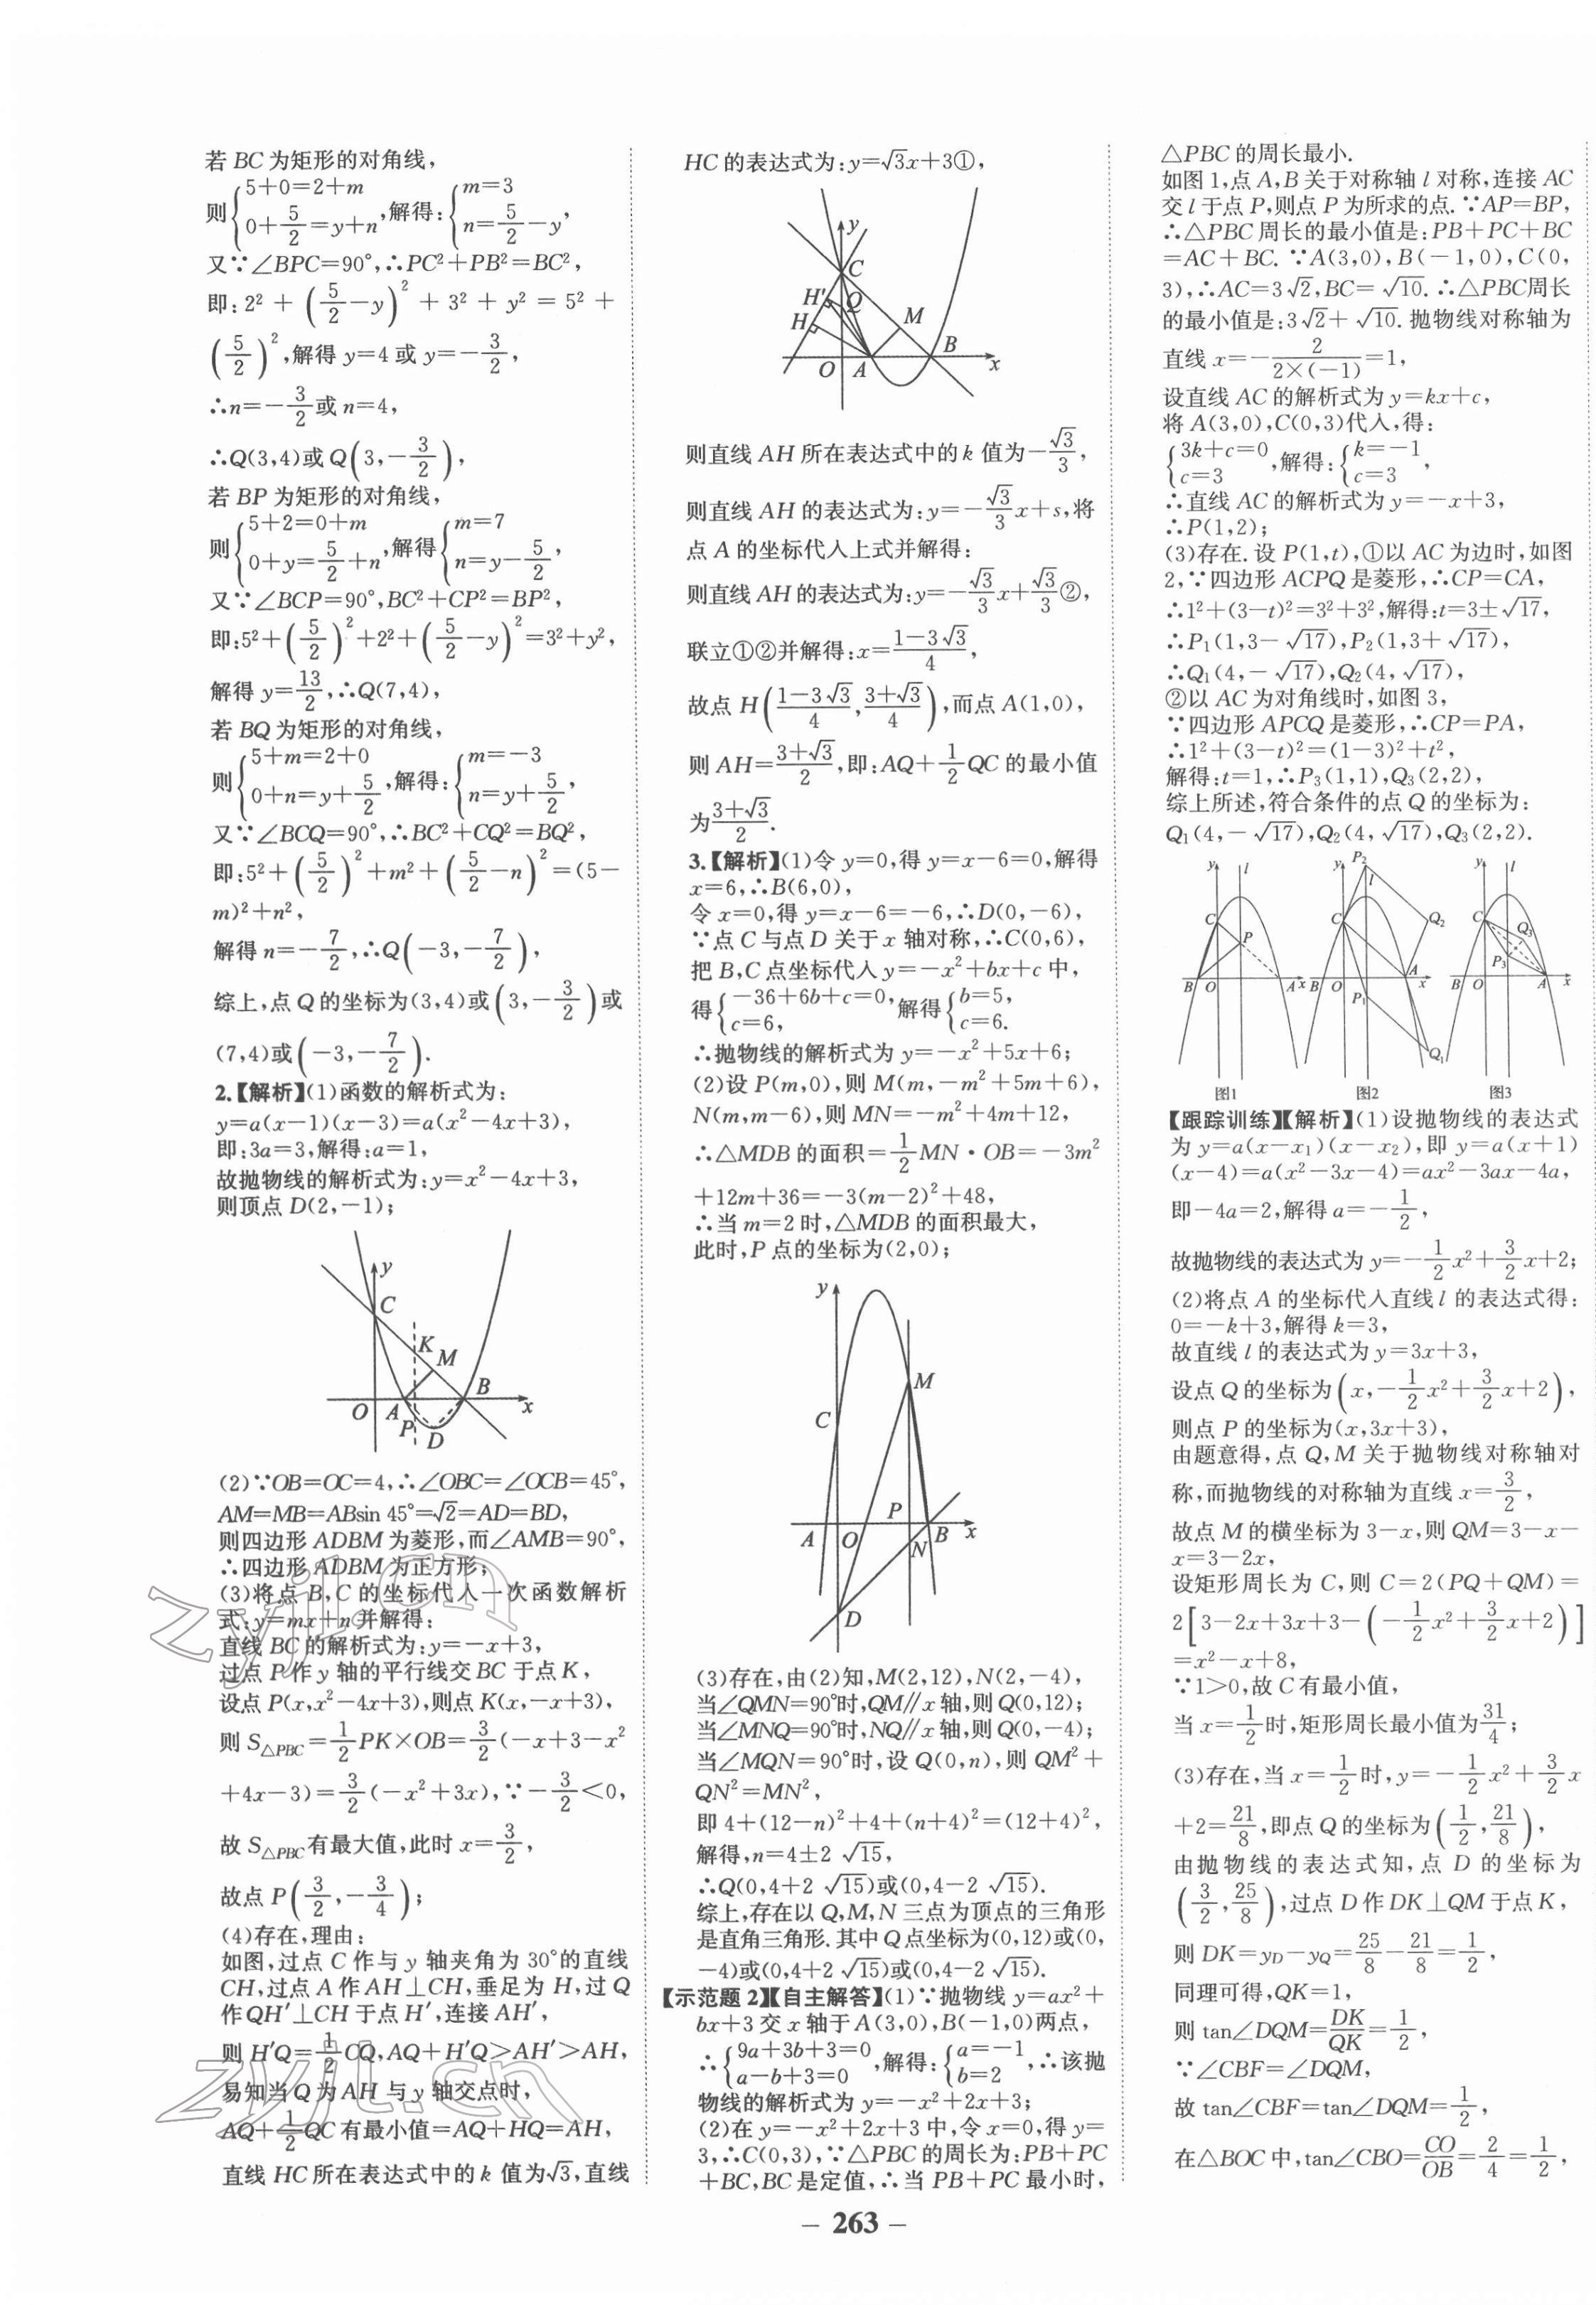 若 BC 为矩形的对角线，
则{5+0=2+m, 0+5/2=y+n, 解得:{m=3, n=5/2-y,
又∵∠BPC=90°,∴PC²+PB²=BC²,
即: 2²+(5/2-y)²+3²+y²=5²+
(5/2)²,解得 y=4 或 y=-3/2,
∴n=-3/2或 n=4,
∴Q(3,4)或 Q(3,-3/2),
若 BP 为矩形的对角线，
则{5+2=0+m, 0+y=5/2+n, 解得{m=7, n=y-5/2,
又∵∠BCP=90°,BC²+CP²=BP²,
即:5²+(5/2)²+2²+(5/2-y)²=3²+y²,
解得 y=13/2,∴Q(7,4),
若 BQ 为矩形的对角线，
则{5+m=2+0, 0+n=y+5/2, 解得:{m=-3, n=y+5/2,
又∵∠BCQ=90°,∴BC²+CQ²=BQ²,
即:5²+(5/2)²+m²+(5/2-n)²=(5-
m)²+n²,
解得 n=-7/2,∴Q(-3,-7/2),
综上,点 Q 的坐标为(3,4)或(3,-3/2)或
(7,4)或(-3,-7/2).
2.【解析】(1)函数的解析式为:
y=a(x-1)(x-3)=a(x²-4x+3),
即:3a=3,解得:a=1,
故抛物线的解析式为:y=x²-4x+3,
则顶点 D(2,-1);
y
C
K
M
B
O
A
x
P
D
(2)∵OB=OC=4,∴∠OBC=∠OCB=45°,
AM=MB=ABsin 45°=√2=AD=BD,
则四边形 ADBM 为菱形,而∠AMB=90°,
∴四边形 ADBM 为正方形;
(3)将点 B,C 的坐标代入一次函数解析
式:y=mx+n 并解得:
直线 BC 的解析式为:y=-x+3,
过点 P 作 y 轴的平行线交 BC 于点 K,
设点 P(x,x²-4x+3),则点 K(x,-x+3),
则 S△PBC=1/2PK×OB=3/2(-x+3-x²
+4x-3)=3/2(-x²+3x),∵-3/2<0,
故 S△PBC 有最大值,此时 x=3/2,
故点 P(3/2,-3/4);
(4)存在,理由:
如图,过点 C 作与 y 轴夹角为 30°的直线
CH,过点 A 作 AH⊥CH,垂足为 H,过 Q
作 QH′⊥CH 于点 H′,连接 AH′,
则 H′Q=1/2CQ,AQ+H′Q>AH′>AH,
易知当 Q 为 AH 与 y 轴交点时,
AQ+1/2QC 有最小值=AQ+HQ=AH,
直线 HC 所在表达式中的 k 值为√3,直线
HC 的表达式为:y=√3x+3①,
y
C
H′
Q
H
M
B
O
A
x
则直线 AH 所在表达式中的 k 值为-√3/3,
则直线 AH 的表达式为:y=-√3/3x+s,将
点 A 的坐标代入上式并解得:
则直线 AH 的表达式为:y=-√3/3x+√3/3②,
联立①②并解得:x=(1-3√3)/4,
故点 H((1-3√3)/4,(3+√3)/4),而点 A(1,0),
则 AH=(3+√3)/2,即:AQ+1/2QC 的最小值
为(3+√3)/2.
3.【解析】(1)令 y=0,得 y=x-6=0,解得
x=6,∴B(6,0),
令 x=0,得 y=x-6=-6,∴D(0,-6),
∵点 C 与点 D 关于 x 轴对称,∴C(0,6),
把 B,C 点坐标代入 y=-x²+bx+c 中,
得{-36+6b+c=0, c=6, 解得{b=5, c=6.
∴抛物线的解析式为 y=-x²+5x+6;
(2)设 P(m,0),则 M(m,-m²+5m+6),
N(m,m-6),则 MN=-m²+4m+12,
∴△MDB 的面积=1/2MN·OB=-3m²
+12m+36=-3(m-2)²+48,
∴当 m=2 时,△MDB 的面积最大,
此时,P 点的坐标为(2,0);
y
M
C
P
A
O
B
x
N
D
(3)存在,由(2)知,M(2,12),N(2,-4),
当∠QMN=90°时,QM∥x 轴,则 Q(0,12);
当∠MNQ=90°时,NQ∥x 轴,则 Q(0,-4);
当∠MQN=90°时,设 Q(0,n),则 QM²+
QN²=MN²,
即 4+(12-n)²+4+(n+4)²=(12+4)²,
解得,n=4±2 √15,
∴Q(0,4+2 √15)或(0,4-2 √15).
综上,存在以 Q,M,N 三点为顶点的三角形
是直角三角形.其中 Q 点坐标为(0,12)或(0,
-4)或(0,4+2 √15)或(0,4-2 √15).
【示范题 2】【自主解答】(1)∵抛物线 y=ax²+
bx+3 交 x 轴于 A(3,0),B(-1,0)两点,
∴{9a+3b+3=0, a-b+3=0, 解得:{a=-1, b=2, ∴该抛
物线的解析式为 y=-x²+2x+3;
(2)在 y=-x²+2x+3 中,令 x=0,得 y=
3,∴C(0,3),∵△PBC 的周长为:PB+PC
+BC,BC 是定值,∴当 PB+PC 最小时,
△PBC 的周长最小.
如图 1,点 A,B 关于对称轴 l 对称,连接 AC
交 l 于点 P,则点 P 为所求的点.∵AP=BP,
∴△PBC 周长的最小值是:PB+PC+BC
=AC+BC. ∵A(3,0),B(-1,0),C(0,
3),∴AC=3√2,BC=√10.∴△PBC周长
的最小值是:3√2+√10.抛物线对称轴为
直线 x=-2/(2×(-1))=1,
设直线 AC 的解析式为 y=kx+c,
将 A(3,0),C(0,3)代入,得:
{3k+c=0, c=3, 解得:{k=-1, c=3,
∴直线 AC 的解析式为 y=-x+3,
∴P(1,2);
(3)存在.设 P(1,t),①以 AC 为边时,如图
2,∵四边形 ACPQ 是菱形,∴CP=CA,
∴1²+(3-t)²=3²+3²,解得:t=3±√17,
∴P₁(1,3-√17),P₂(1,3+√17),
∴Q₁(4,-√17),Q₂(4,√17),
②以 AC 为对角线时,如图 3,
∵四边形 APCQ 是菱形,∴CP=PA,
∴1²+(3-t)²=(1-3)²+t²,
解得:t=1,∴P₃(1,1),Q₃(2,2),
综上所述,符合条件的点 Q 的坐标为:
Q₁(4,-√17),Q₂(4,√17),Q₃(2,2).
y l C P B O A x 图1
y P₂ l C Q₂ B O A x P₁ Q₁ 图2
y l C Q₃ P₃ B O A x 图3
【跟踪训练】【解析】(1)设抛物线的表达式
为 y=a(x-x₁)(x-x₂),即 y=a(x+1)
(x-4)=a(x²-3x-4)=ax²-3ax-4a,
即-4a=2,解得 a=-1/2,
故抛物线的表达式为 y=-1/2x²+3/2x+2;
(2)将点 A 的坐标代入直线 l 的表达式得:
0=-k+3,解得 k=3,
故直线 l 的表达式为 y=3x+3,
设点 Q 的坐标为(x,-1/2x²+3/2x+2),
则点 P 的坐标为(x,3x+3),
由题意得,点 Q,M 关于抛物线对称轴对
称,而抛物线的对称轴为直线 x=3/2,
故点 M 的横坐标为 3-x,则 QM=3-x-
x=3-2x,
设矩形周长为 C,则 C=2(PQ+QM)=
2[3-2x+3x+3-(-1/2x²+3/2x+2)]
=x²-x+8,
∵1>0,故 C 有最小值,
当 x=1/2时,矩形周长最小值为31/4;
(3)存在,当 x=1/2时,y=-1/2x²+3/2x
+2=21/8,即点 Q 的坐标为(1/2,21/8),
由抛物线的表达式知,点 D 的坐标为
(3/2,25/8),过点 D 作 DK⊥QM 于点 K,
则 DK=yD-yQ=25/8-21/8=1/2,
同理可得,QK=1,
则 tan∠DQM=DK/QK=1/2,
∵∠CBF=∠DQM,
故 tan∠CBF=tan∠DQM=1/2,
在△BOC 中,tan∠CBO=CO/OB=2/4=1/2,
- 263 -
zyjl.cn
zyjl.cn